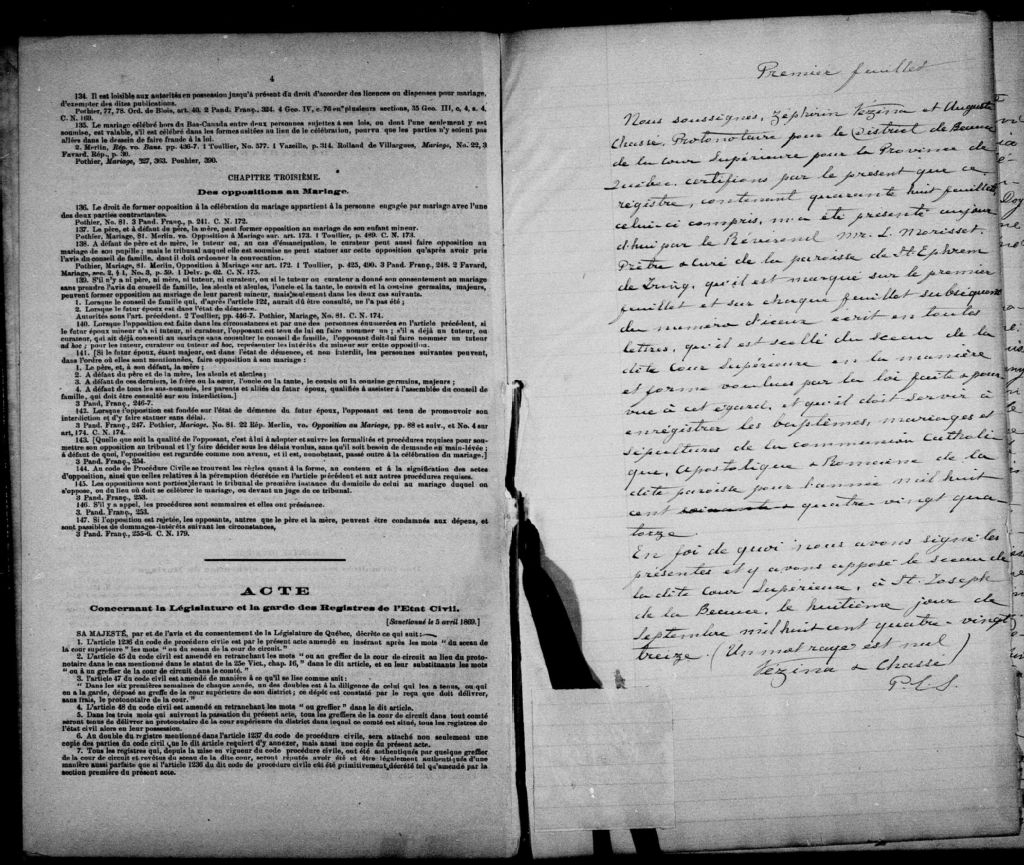 4
134. Il est loisible aux autorités en possession jusqu'à présent du droit d'accorder des licences ou dispenses pour mariage,
d'exempter des dites publications.
Pothier, 77, 78. Ord. de Blois, art. 40. 2 Pand. Franç., 324. 4 Geo. IV, c. 76 en plusieurs sections, 35 Geo. III, c, 4, s. 4.
C. N. 169.
135. Le mariage célébré hors du Bas-Canada entre deux personnes sujettes à ses lois, ou dont l'une seulement y est
soumise, est valable, s'il est célébré dans les formes usitées au lieu de la célébration, pourvu que les parties n'y soient pas
allées dans le dessein de faire fraude à la loi.
2. Merlin, Rép. vo. Bans. pp. 436-7. 1 Toullier, No. 577. 1 Vazeille, p. 314. Rolland de Villargues, Mariage, No. 22, 3
Favard. Rép., p. 30.
Pothier, Mariage, 327, 363. Pouhier, 390.
CHAPITRE TROISIÈME.
Des oppositions au Mariage.
136. Le droit de former opposition à la célébration du mariage appartient à la personne engagée par mariage avec l'une
des deux parties contractantes.
Pothier, No. 81. 3 Pand. Franç., p. 241. C. N. 172.
137. Le père, et à défaut du père, la mère, peut former opposition au mariage de son enfant mineur.
Pothier, Mariage, 81. Merlin, vo. Opposition à Mariage sur. art. 173. 1 Toullier, p. 489. C. N. 173.
138. A défaut de père et de mère, le tuteur ou, au cas d'émancipation, le curateur peut aussi faire opposition au
mariage de son pupille; mais le tribunal auquel elle est soumise ne peut statuer sur cette opposition qu'après avoir pris
l'avis du conseil de famille, dont il doit ordonner la convocation.
Pothier, Mariage, 81. Merlin, Opposition à Mariage sur art. 172. 1 Toullier, p. 425, 490. 3 Pand. Franç., 248. 2 Favard,
Mariage, sec. 2, § 1, No. 3, p. 59. 1 Delv. p. 62. C. N. 175.
139. S'il n'y a ni père, ni mère, ni tuteur, ni curateur, ou si le tuteur ou curateur a donné son consentement au mariage
sans prendre l'avis du conseil de famille, les aïeuls et aïeules, l'oncle et la tante, le cousin et la cousine germains, majeurs,
peuvent former opposition au mariage de leur parent mineur, mais seulement dans les deux cas suivants.
1. Lorsque le conseil de famille qui, d'après l'article 122, aurait dû être consulté, ne l'a pas été;
2. Lorsque le futur époux est dans l'état de démence.
Autorités sous l'art. précédent. 2 Toullier, pp. 446-7. Pothier, Mariage, No. 81. C. N. 174.
140. Lorsque l'opposition est faite dans les circonstances et par une des personnes énumérées en l'article précédent, si
le futur époux mineur n'a ni tuteur, ni curateur, l'opposant est tenu de lui en faire nommer un; s'il a déjà un tuteur, ou
curateur, qui ait déjà consenti au mariage sans consulter le conseil de famille, l'opposant doit lui faire nommer un tuteur
ad hoc; pour les tuteur, curateur ou tuteur ad hoc, représenter les intérêts du mineur sur cette opposition.
141. [Si le futur époux, étant majeur, est dans l'état de démence, et non interdit, les personnes suivantes peuvent,
dans l'ordre où elles sont mentionnées, faire opposition à son mariage:
1. Le père, et, à son défaut, la mère;
2. A défaut du père et de la mère, les aïeuls et aïeules;
3. A défaut de ces derniers, le frère ou la sœur, l'oncle ou la tante, le cousin ou la cousine germains, majeurs;
4. A défaut de tous les sus-nommés, les parents et alliés du futur époux, qualifiés à assister à l'assemblée du conseil de
famille, qui doit être consulté sur son interdiction.]
3 Pand. Franç., 246-7.
142. Lorsque l'opposition est fondée sur l'état de démence du futur époux, l'opposant est tenu de promouvoir son
interdiction et d'y faire statuer sans délai.
3 Pand. Franç., 247. Pothier, Mariage, No. 81. 22 Rép. Merlin, vo. Opposition au Mariage, pp. 88 et suiv., et No. 4 sur
art, 174. C. N. 174.
143. [Quelle que soit la qualité de l'opposant, c'est à lui à adopter et suivre les formalités et procédures requises pour sou-
mettre son opposition au tribunal et l'y faire décider sous les délais voulus, sans qu'il soit besoin de demande en main-levée;
à défaut de quoi, l'opposition est regardée comme non avenu, et il est, nonobstant, passé outre à la célébration du mariage.]
3 Pand. Franç., 254.
144. Au code de Procédure Civile se trouvent les règles quant à la forme, au contenu et à la signification des actes
d'opposition, ainsi que celles relatives à la péremption décrétée en l'article précédent et aux autres procédures requises.
145. Les oppositions sont portées devant le tribunal de première instance du domicile de celui au mariage duquel on
s'oppose, ou du lieu où doit se célébrer le mariage, ou devant un juge de ce tribunal.
3 Pand. Franç., 253.
146. S'il y a appel, les procédures sont sommaires et elles ont préséance.
3 Pand. Franç., 253.
147. Si l'opposition est rejetée, les opposants, autres que le père et la mère, peuvent être condamnés aux dépens, et
sont passibles de dommages-intérêts suivant les circonstances,
3 Pand. Franç., 255-6. C. N. 179.
ACTE
Concernant la Législature et la garde des Registres de l'Etat Civil.
[Sanctionné le 5 avril 1869.]
SA MAJESTÉ, par et de l'avis et du consentement de la Législature de Québec, décrète ce qui suit:—
1. L'article 1236 du code de procédure civile est par le présent acte amendé en insérant après les mots "du sceau de
la cour supérieure" les mots "ou du sceau de la cour de circuit."
2. L'article 45 du code civil est amendé en retranchant les mots "ou au greffier de la cour de circuit au lieu du proto-
notaire dans le cas mentionné dans le statut de la 25e Vict., chap. 16," dans le dit article, et en leur substituants les mots
"ou à un greffier de la cour de circuit dans le comté."
3. l'article 47 du code civil est amendé de manière à ce qu'il se lise comme suit:
"Dans les six premières semaines de chaque année, un des doubles est à la diligence de celui qui les a tenus, ou qui
en a la garde, déposé au greffe de la cour supérieure de son district; ce dépôt est constaté par le reçu que doit délivrer,
sans frais, le protonotaire de la cour."
4. L'article 48 du code civil est amendé en retranchant les mots "ou greffier" dans le dit article.
5. Dans les trois mois qui suivront la passation du présent acte, tous les greffiers de la cour de circuit dans tout comté
seront tenus de délivrer au protonotaire de la cour supérieure du district dans lequel ce comté est situé, tous les registres de
l'état civil alors en leur possession.
6. Au double du registre mentionné dans l'article 1237 du code de procédure civile, sera attaché non seulement une
copie des parties du code civil que le dit article requiert d'y annexer, mais aussi une copie du présent acte.
7. Tous les registres qui, depuis la mise en vigueur du code procédure civile, ont été authentiqués par quelque greffier
de la cour de circuit et revêtus du sceau de la dite cour, seront réputés avoir été et être légalement authentiqués d'une
manière aussi parfaite que si l'article 1236 du dit code de procédure civile eût été primitivement décrété tel qu'amendé par la
section première du présent acte.
Premier feuillet
Nous soussignés, Zéphirin Vézina et Auguste
Chassé, Protonotaire pour le District de Beauce
de la Cour Supérieure pour la Province de
Québec, certifions par le présent que ce
régistre, contenant quarante huit feuillets,
celui-ci compris, m'a été présenté aujour
d'hui par le Révérend Mr. L. Morisset.
Prêtre & curé de la paroisse de St. Ephrem
de Tring, qu'il est marqué sur le premier
feuillet et sur chaque feuillet subséquent
du numéro d'iceux écrit en toutes
lettres, qu'il est scellé du sceau de la
dite Cour Supérieure en la manière
et forme voulues par la loi faite & pour
vue à cet égard, et qu'il doit servir à
enregistrer les baptêmes, mariages et
sépultures de la communion Catholi
que, Apostolique & Romaine de la
dite paroisse pour l'année mil huit
cent soixante & quatre vingt qua-
torze.
En foi de quoi nous avons signé les
présentes et y avons apposé le sceau de
la dite Cour Supérieure, à St. Joseph
de la Beauce, le huitième jour de
Septembre mil huit cent quatre-vingt
treize. (Un mot rayé est nul)
Vézina & Chassé
P. C. S.